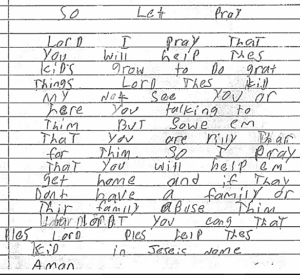 So Let Pray
Lord I pray That
You will help Thes
Kid's grow to Do grat
Things Lord Thes Kid
My Not See you or
here You talking to
Thim But Sowe em
That You are rilly Thar
for Thim So I Pray
That You will help em
get home and if Thay
Dont have a family or
Thir family abuse Thim
You cang That
Ples Lord Ples help Thes
Keid in Jeseis name
Aman